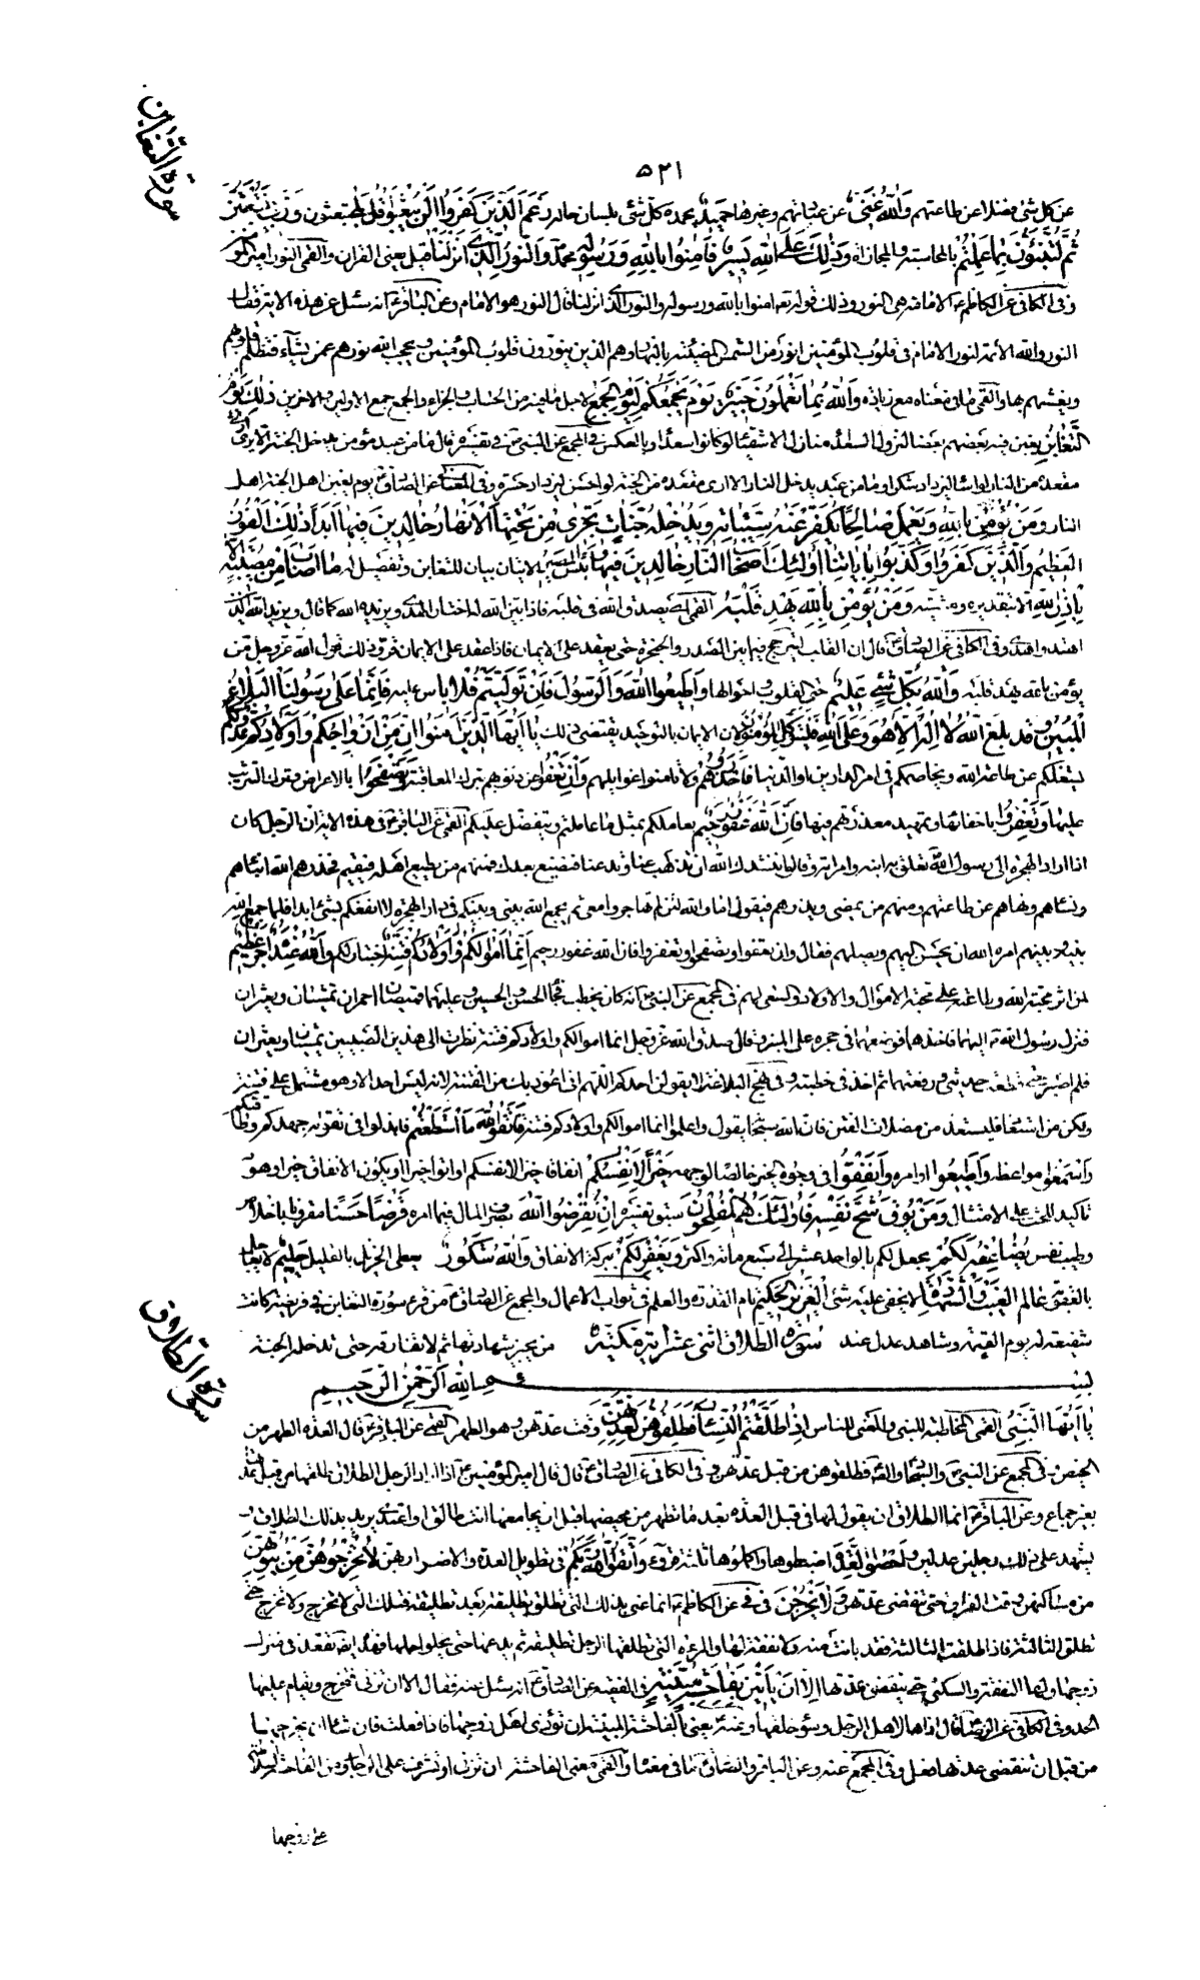 سورة التغابن
٥٢١
عن كل شئ فضلا عن طاعتهم وَاللهُ غَنِيٌّ عن عباداتهم وغيرها حَمِيدٌ يحمده كل شئ بلسان حاله زَعَمَ الَّذِينَ كَفَرُوا أَنْ لَنْ يُبْعَثُوا قُلْ بَلىٰ تبعثون وَرَبِّي لَتُبْعَثُنَّ
ثُمَّ لَتُنَبَّؤُنَّ بِمَا عَمِلْتُمْ بالمحاسبة والمجازاة وَذٰلِكَ عَلَى اللهِ يَسِيرٌ فَآمِنُوا بِاللهِ وَرَسُولِهِ محمد وَالنُّورِ الَّذِي أَنْزَلْنَا قيل يعنى القران والقمى النور امير المؤمنين
وفى الكافى عن الكاظم الامامة هى النور وذلك قوله تعالى امنوا بالله ورسوله والنور الذى انزلنا قال النور هو الامام وعن الباقر انه سئل عن هذه الاية فقال
النور والله الائمة لنور الامام فى قلوب المؤمنين انور من الشمس المضيئة بالنهار وهم الذين ينورون قلوب المؤمنين ويحجب الله نورهم عمن يشاء فتظلم قلوبهم
ويغشيهم بها والقمى ما فى معناه مع زيادة وَاللهُ بِمَا تَعْمَلُونَ خَبِيرٌ يَوْمَ يَجْمَعُكُمْ لِيَوْمِ الْجَمْعِ لاجل ما فيه من الحساب والجزاء والجمع جمع الاولين والاخرين ذٰلِكَ يَوْمُ
التَّغَابُنِ يغبن فيه بعضهم بعضا لنزول السعداء منازل الاشقياء لو كانوا سعداء وبالعكس فى المجمع عن النبى فى تفسيره قال ما من عبد مؤمن يدخل الجنة الا يرى
مقعده من النار لو اساء ليزداد شكرا وما من عبد يدخل النار الا ارى مقعده من الجنة لو احسن ليزداد حسرة وفى المعانى عن الصادق يوم يغبن اهل الجنة اهل
النار وَمَنْ يُؤْمِنْ بِاللهِ وَيَعْمَلْ صَالِحًا يُكَفِّرْ عَنْهُ سَيِّئَاتِهِ وَيُدْخِلْهُ جَنَّاتٍ تَجْرِي مِنْ تَحْتِهَا الْأَنْهَارُ خَالِدِينَ فِيهَا أَبَدًا ذٰلِكَ الْفَوْزُ
الْعَظِيمُ وَالَّذِينَ كَفَرُوا وَكَذَّبُوا بِآيَاتِنَا أُولٰئِكَ أَصْحَابُ النَّارِ خَالِدِينَ فِيهَا وَبِئْسَ الْمَصِيرُ الايتان بيان للتغابن وتفصيل له مَا أَصَابَ مِنْ مُصِيبَةٍ إِلَّا
بِإِذْنِ اللهِ الا بتقديره ومشيته وَمَنْ يُؤْمِنْ بِاللهِ يَهْدِ قَلْبَهُ القمى اى يصدق الله فى قلبه فاذا بين الله له اختار الهدى ويزيده الله كما قال ويزيد الله الذين
اهتدوا هدى وفى الكافى عن الصادق قال ان القلب ليترجج فيما بين الصدر والحنجرة حتى يعقد على الايمان فاذا عقد على الايمان قر وذلك قول الله عز وجل ومن
يؤمن بالله يهد قلبه وَاللهُ بِكُلِّ شَيْءٍ عَلِيمٌ حتى القلوب واحوالها وَأَطِيعُوا اللهَ وَأَطِيعُوا الرَّسُولَ فَإِنْ تَوَلَّيْتُمْ فلا باس عليه فَإِنَّمَا عَلىٰ رَسُولِنَا الْبَلَاغُ
الْمُبِينُ وقد بلغ اللهُ لَا إِلٰهَ إِلَّا هُوَ وَعَلَى اللهِ فَلْيَتَوَكَّلِ الْمُؤْمِنُونَ لان الايمان بالتوحيد يقتضى ذلك يَا أَيُّهَا الَّذِينَ آمَنُوا إِنَّ مِنْ أَزْوَاجِكُمْ وَأَوْلَادِكُمْ عَدُوًّا لَكُمْ
يشغلكم عن طاعة الله ويخاصمكم فى امر الدين او الدنيا فَاحْذَرُوهُمْ ولا تامنوا غوائلهم وَإِنْ تَعْفُوا عن ذنوبهم بترك المعاقبة وَتَصْفَحُوا بالاعراض وترك التثريب
عليها وَتَغْفِرُوا باخفائها وتمهيد معذرتهم فيها فَإِنَّ اللهَ غَفُورٌ رَحِيمٌ يعاملكم بمثل ما عاملتم ويتفضل عليكم القمى عن الباقر فى هذه الاية ان الرجل كان
اذا اراد الهجرة الى رسول الله تعلق به ابنه وامراته وقالوا ننشدك الله ان تذهب عنا وتدعنا فنضيع بعدك فمنهم من يطيع اهله فيقيم فحذرهم الله ابناءهم
ونساءهم ونهاهم عن طاعتهم ومنهم من يمضى ويذرهم فيقول اما والله لئن لم تهاجروا معى ثم يجمع الله بينى وبينكم فى دار الهجرة لا انفعكم بشئ ابدا فلما جمع الله
بينه وبينهم امره الله ان يحسن اليهم ويصلهم فقال وان تعفوا وتصفحوا وتغفروا فان الله غفور رحيم إِنَّمَا أَمْوَالُكُمْ وَأَوْلَادُكُمْ فِتْنَةٌ اختبار لكم وَاللهُ عِنْدَهُ أَجْرٌ عَظِيمٌ
لمن اثر محبة الله وطاعته على محبة الاموال والاولاد والسعى لهم فى المجمع عن النبى انه كان يخطب فجاء الحسن والحسين وعليهما قميصان احمران يمشيان ويعثران
فنزل رسول الله اليهما فاخذهما فوضعهما فى حجره على المنبر وقال صدق الله عز وجل انما اموالكم واولادكم فتنة نظرت الى هذين الصبيين يمشيان ويعثران
فلم اصبر حتى قطعت حديثى ورفعتهما ثم اخذ فى خطبته وفى نهج البلاغة لا يقولن احدكم اللهم انى اعوذ بك من الفتنة لانه ليس احد الا وهو مشتمل على فتنة
ولكن من استعاذ فليستعذ من مضلات الفتن فان الله سبحانه يقول واعلموا انما اموالكم واولادكم فتنة فَاتَّقُوا اللهَ مَا اسْتَطَعْتُمْ فابذلوا فى تقواه جهدكم وطاقتكم
وَاسْمَعُوا مواعظه وَأَطِيعُوا اوامره وَأَنْفِقُوا فى وجوه الخير خالصا لوجهه خَيْرًا لِأَنْفُسِكُمْ انفاقا خيرا لانفسكم او ائتوا خيرا او يكون الانفاق خيرا وهو
تاكيد للحث على الامتثال وَمَنْ يُوقَ شُحَّ نَفْسِهِ فَأُولٰئِكَ هُمُ الْمُفْلِحُونَ سبق تفسيره إِنْ تُقْرِضُوا اللهَ بصرف المال فيما امره قَرْضًا حَسَنًا مقرونا باخلاص
وطيب نفس يُضَاعِفْهُ لَكُمْ يجعل لكم بالواحد عشرا الى سبع مائة واكثر وَيَغْفِرْ لَكُمْ ببركة الانفاق وَاللهُ شَكُورٌ يعطى الجزيل بالقليل حَلِيمٌ لا يعاجل
بالعقوبة عَالِمُ الْغَيْبِ وَالشَّهَادَةِ لا يخفى عليه شئ الْعَزِيزُ الْحَكِيمُ تام القدرة والعلم فى ثواب الاعمال والمجمع عن الصادق من قرء سورة التغابن فى فريضة كانت
شفيعة له يوم القيمة وشاهد عدل عند من يجيز شهادتها ثم لا تفارقه حتى تدخله الجنة سورة الطلاق اثنى عشر اية مدنية
سورة الطلاق
بسم الله الرحمن الرحيم
يَا أَيُّهَا النَّبِيُّ القمى المخاطبة للنبى والمعنى للناس إِذَا طَلَّقْتُمُ النِّسَاءَ فَطَلِّقُوهُنَّ لِعِدَّتِهِنَّ وقت عدتهن وهو الطهر القمى عن الباقر قال العدة الطهر من
الحيض فى المجمع عن النبى والسجاد والصادق فطلقوهن من قبل عدتهن وفى الكافى عن الصادق قال قال امير المؤمنين اذا اراد الرجل الطلاق طلقها من قبل عدتها
بغير جماع وعن الباقر انما الطلاق ان يقول لها فى قبل العدة بعد ما تطهر من محيضها قبل ان يجامعها انت طالق او اعتدى يريد بذلك الطلاق و
يشهد على ذلك رجلين عدلين وَأَحْصُوا الْعِدَّةَ اضبطوها واكملوها ثلاثة قروء وَاتَّقُوا اللهَ رَبَّكُمْ فى تطويل العدة والاضرار بهن لَا تُخْرِجُوهُنَّ مِنْ بُيُوتِهِنَّ
من مساكنهن وقت الفراق حتى تنقضى عدتهن وَلَا يَخْرُجْنَ فى عن الكاظم انما عنى بذلك التى تطلق تطليقة بعد تطليقة فتلك التى لا تخرج ولا تخرج حتى
تطلق الثالثة فاذا طلقت الثالثة فقد بانت منه ولا نفقة لها والمرءة التى يطلقها الرجل تطليقة ثم يدعها حتى يخلو اجلها فهذه ايضا تقعد فى منزل
زوجها ولها النفقة والسكنى حتى تنقضى عدتها إِلَّا أَنْ يَأْتِينَ بِفَاحِشَةٍ مُبَيِّنَةٍ فى الفقيه عن الصادق انه سئل عنه فقال الا ان تزنى فتخرج ويقام عليها
الحد وفى الكافى عن الرضا قال اذاها لاهل الرجل وسوء خلقها وعنه يعنى بالفاحشة المبينة ان تؤذى اهل زوجها فاذا فعلت فان شاء ان يخرجها
من قبل ان تنقضى عدتها فعل وفى المجمع عنه وعن الباقر والصادق ما فى معناه والقمى معنى الفاحشة ان تزنى او تشرف على الرجال ومن الفاحشة السلاطة
على زوجها